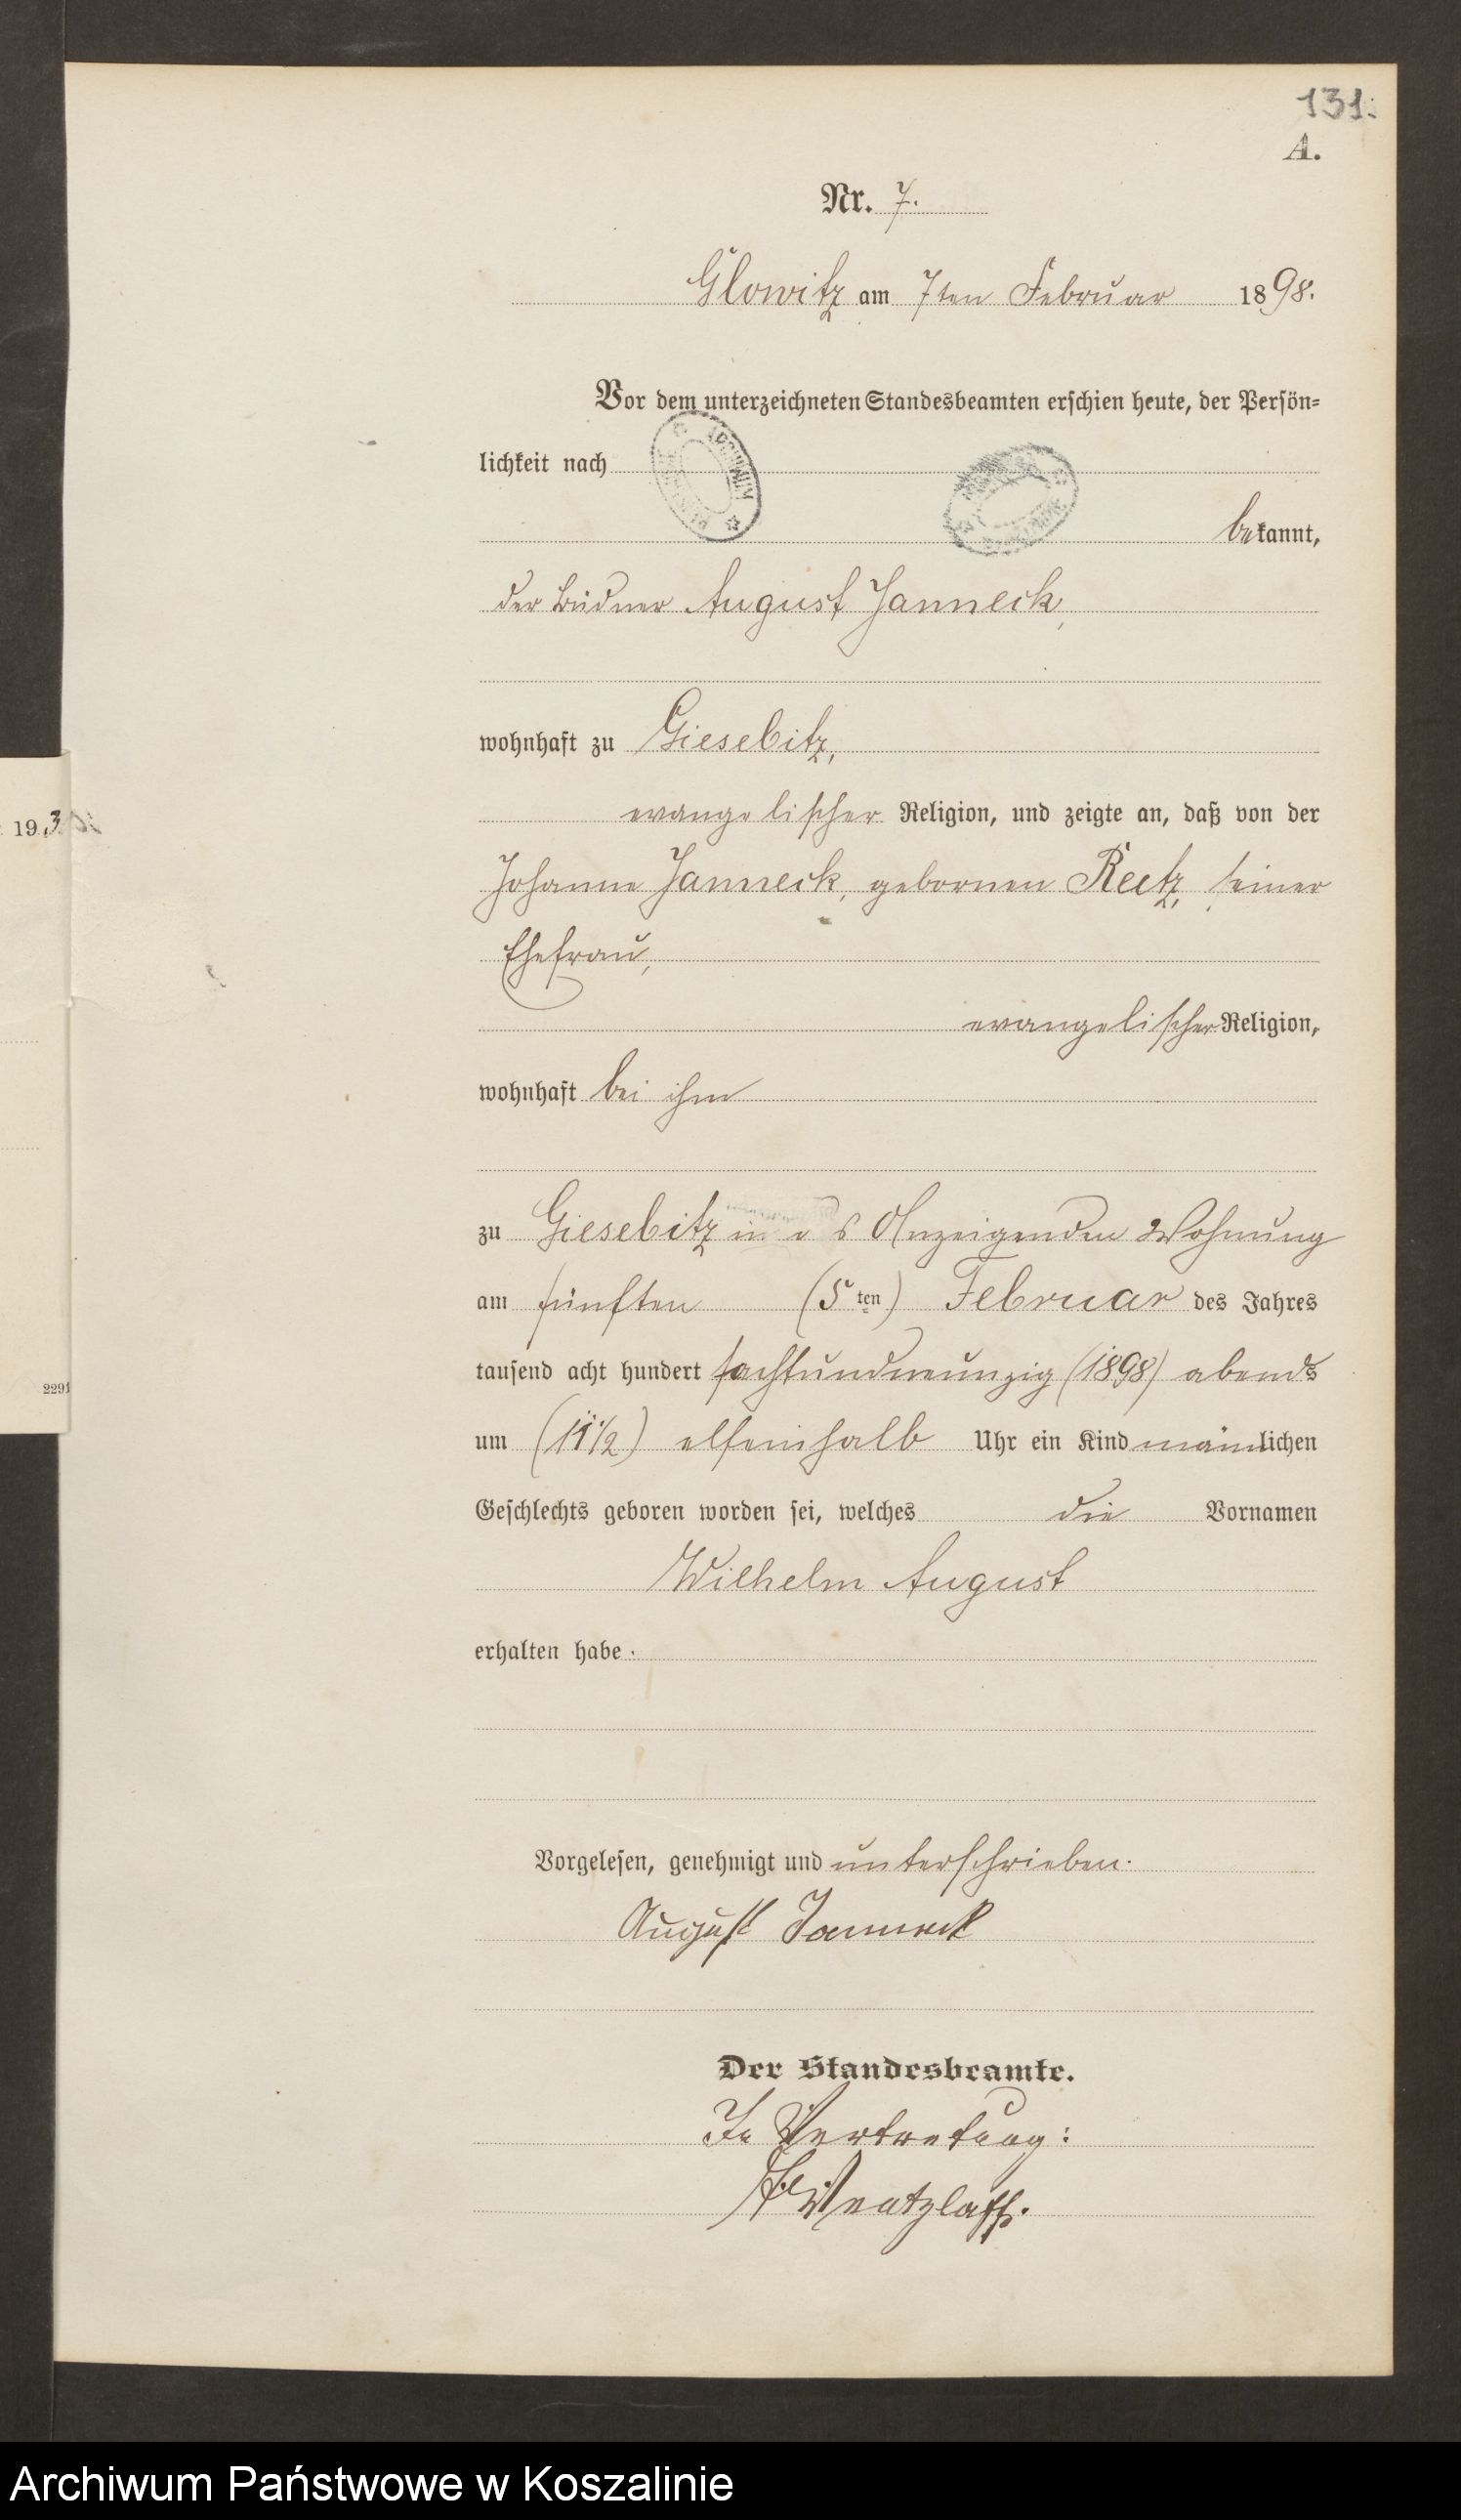 131.
A.
Nr. 7.
Glowitz am 7ten Februar 1898.
Vor dem unterzeichneten Standesbeamten erschien heute, der Persön=
lichkeit nach
bekannt,
der Büdner August Janneck,
wohnhaft zu Giesebitz,
evangelischer Religion, und zeigte an, daß von der
Johanne Janneck, gebornen Reetz, seiner
Ehefrau,
evangelischer Religion,
wohnhaft bei ihm
zu Giesebitz in Anzeigenden Wohnung
am fünften (5ten) Februar des Jahres
tausend acht hundert achtundneunzig (1898) abends
um (11 1/2) elfeinhalb Uhr ein Kind männlichen
Geschlechts geboren worden sei, welches die Vornamen
Wilhelm August
erhalten habe.
Vorgelesen, genehmigt und unterschrieben.
August Janneck
Der Standesbeamte.
In Vertretung:
Wentzlaff.
193
2291
Archiwum Państwowe w Koszalinie